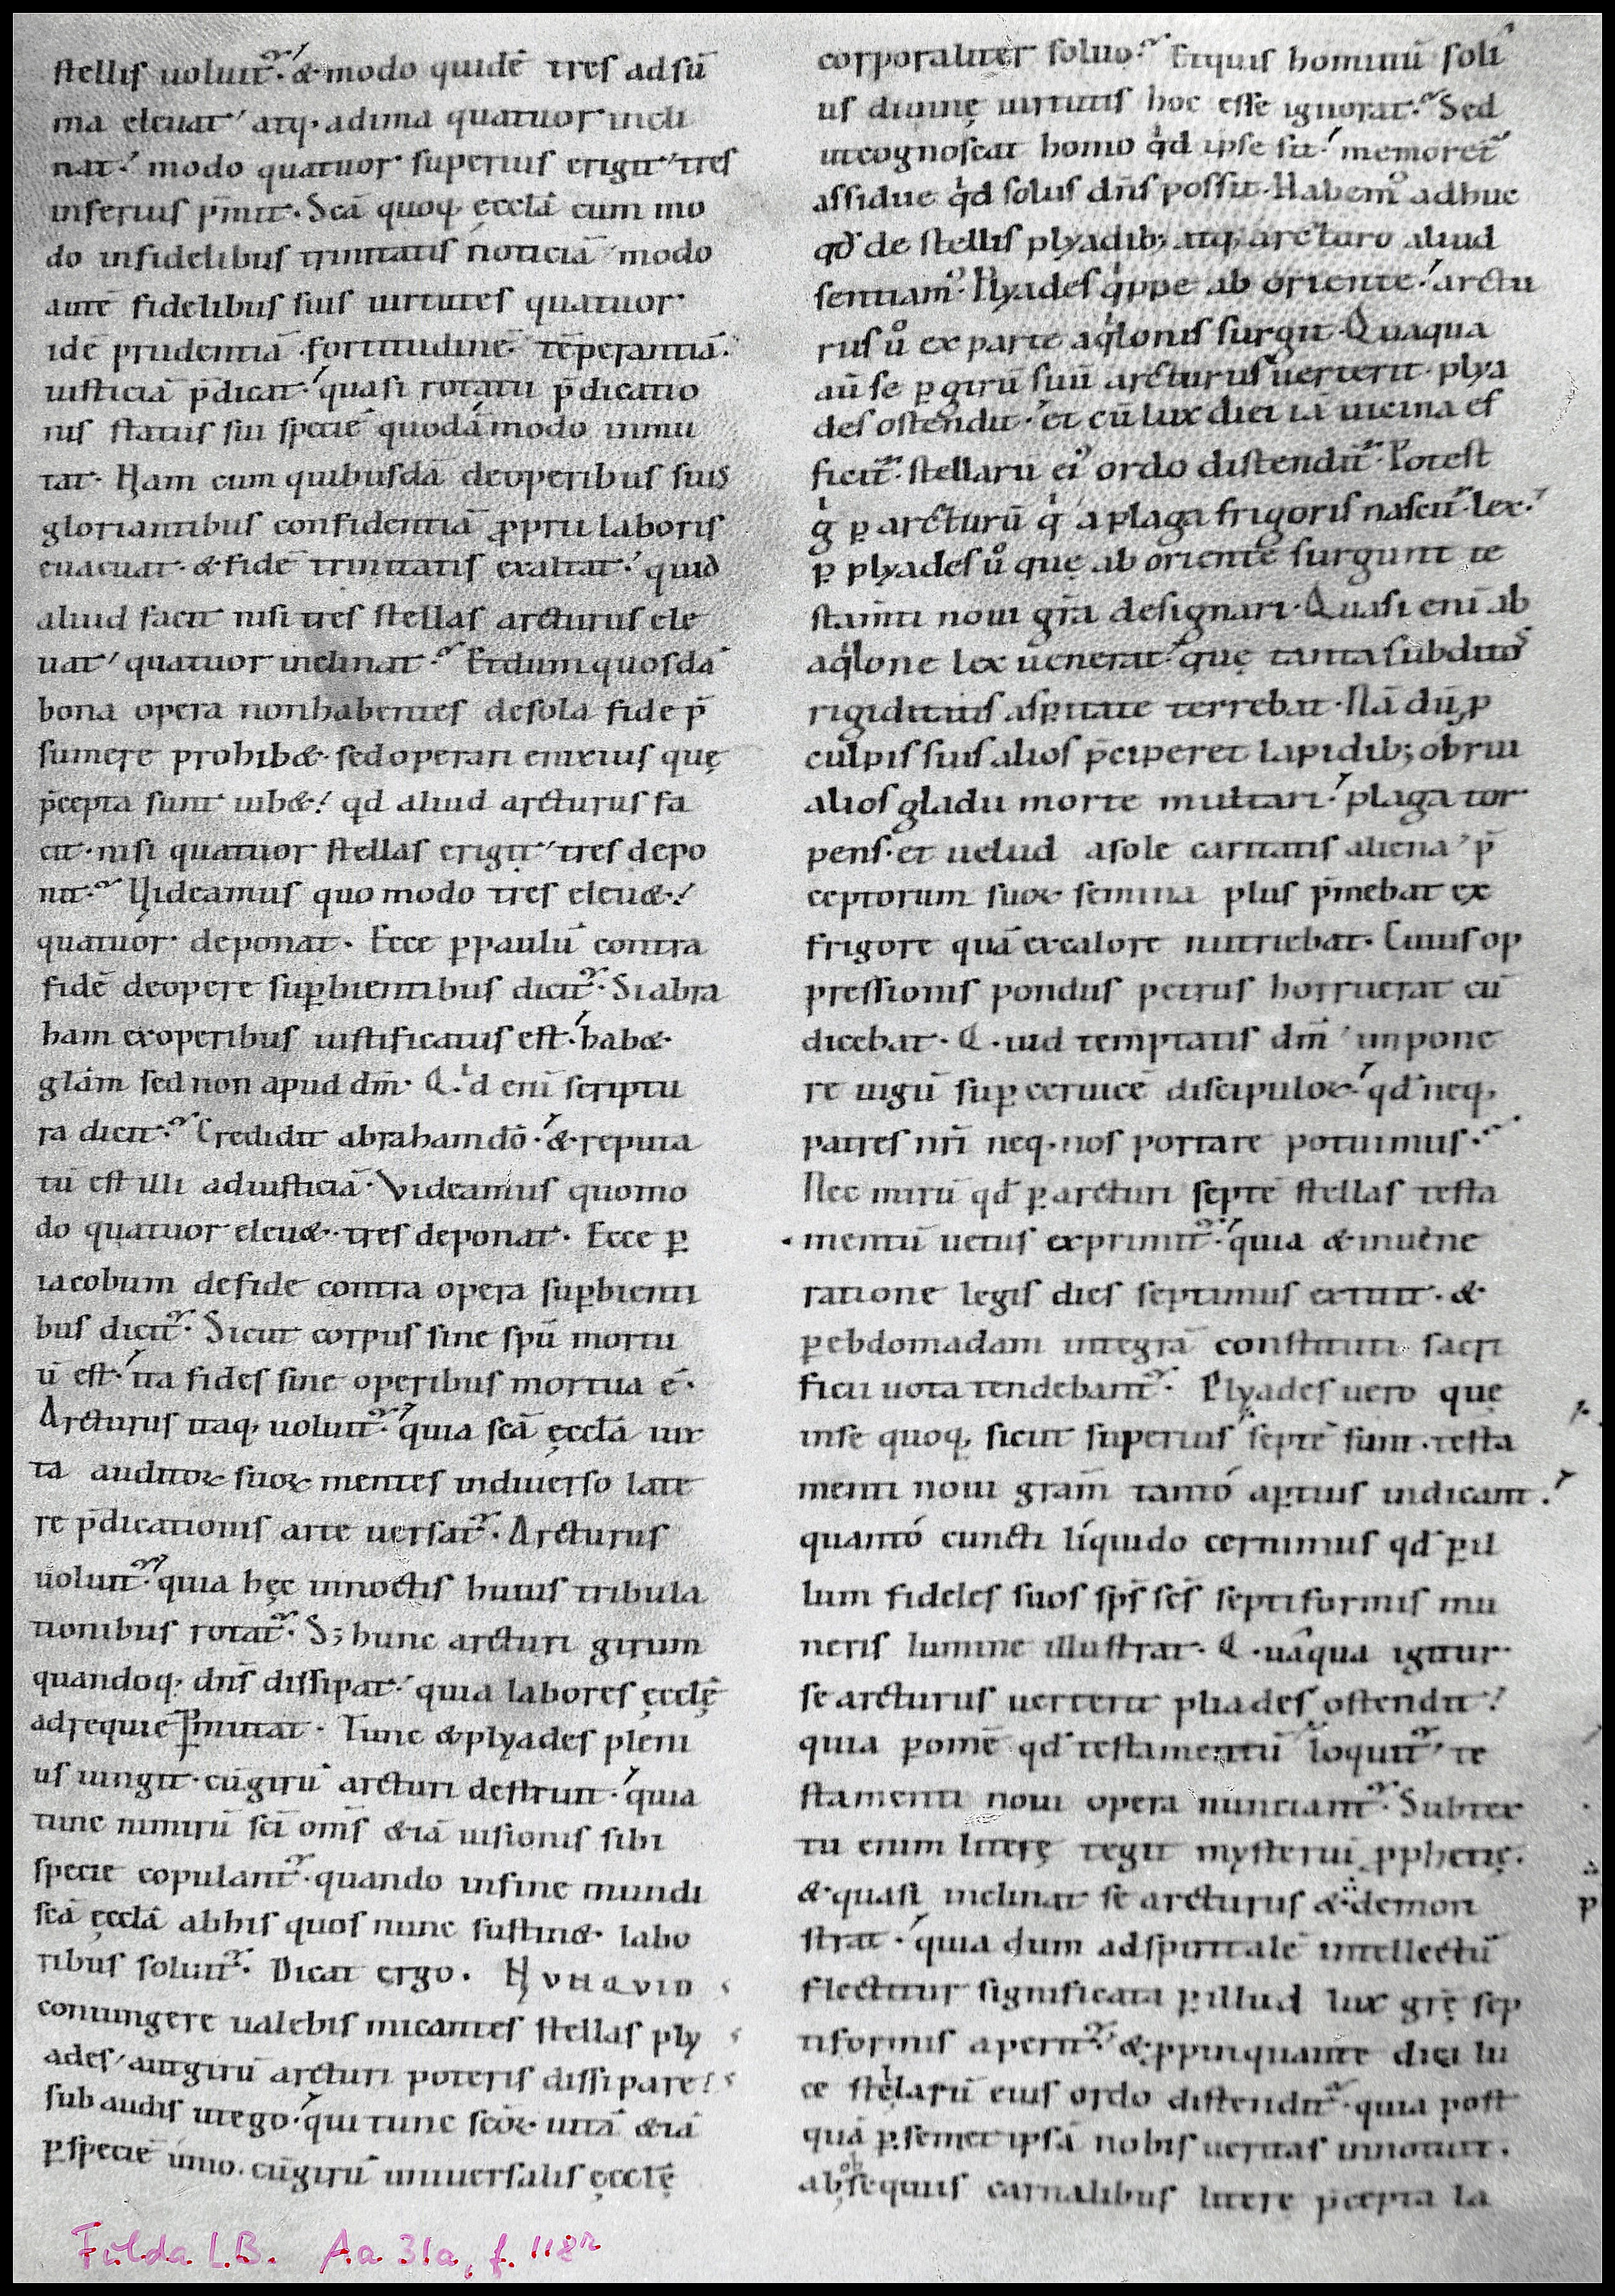 stellis uoluit᷑. & modo quidē tres ad sū
ma eleuat, atq. ad ima quatuor incli
nat. modo quatuor superius erigit, tres
inferius p̄mit. Scā quoq. ęcclā cum mo
do infidelibus trinitatis noticiā, modo
autē fidelibus suis uirtutes quatuor
idē prudentiā. fortitudinē. tēperantiā.
iusticiā p̄dicat. quasi rotatu p̄dicatio
nis status sui speciē quodāmodo inmu
tat. Nam cum quibusdā de operibus suis
gloriantibus confidentiā ꝓprii laboris
euacuat. & fidē trinitatis exaltat. quid
aliud facit nisi tres stellas arcturus ele
uat, quatuor inclinat. Et dum quosdā
bona opera non habentes de sola fide p̄
sumere prohib&. sed operari enixius quę
p̄cepta sunt iub&. qd aliud arcturus fa
cit. nisi quatuor stellas erigit, tres depo
nit. Videamus quo modo tres eleu&.
quatuor deponat. Ecce ꝑ paulū contra
fidē de opere suꝑbientibus dicit᷑. Si abra
ham ex operibus iustificatus est. hab&
glām sed non apud dm̄. Q.ͥd enī scriptu
ra dicit. Credidit abraham dō. & reputa
tū est illi ad iusticiā. Videamus quomo
do quatuor eleu&. tres deponat. Ecce ꝑ
iacobum de fide contra opera suꝑbienti
bus dicit᷑. Sicut corpus sine spū mortu
ū est. ita fides sine operibus mortua ē.
Arcturus itaq. uoluit᷑. quia scā ęcclā iux
ta auditoꝝ suoꝝ mentes in diuerso late
re p̄dicationis arte uersat᷑. Arcturus
uoluit᷑. quia hęc in noctis huius tribula
tionibus rotat᷑. S; hunc arcturi girum
quandoq. dn̄s dissipat. quia labores ęcclę̄
ad requiē ꝑmutat. Tunc & plyades pleni
us iungit. cū girū arcturi destruit. quia
tunc nimirū scī om̄s & iā uisionis sibi
specie copulant᷑. quando in fine mundi
scā ęcclā ab his quos nunc sustin& labo
ribus soluit᷑. Dicat ergo. NVNQVID
coniungere ualebis micantes stellas ply
ades, aut girū arcturi poteris dissipare?
subaudis ut ego. qui tunc scōꝝ uitā & iā
ꝑ speciē unio. cū girū uniuersalis ęcclę̄
corporaliter soluo. Et quis hominū soli
us diuinę uirtutis hoc esse ignorat. Sed
ut cognoscat homo qͥd ipse sit. memoret᷑
assidue qͥd solus dn̄s possit. Habem᷒ adhuc
qd̄ de stellis plyadib; atq. arcturo aliud
sentiam᷒. Plyades qͥppe ab oriente. arctu
rus uͦ ex parte aqͥlonis surgit. Quaqua
aū se ꝑ girū suū arcturus uerterit. plya
des ostendit. et cū lux diei iā uicina ef
ficit᷑. stellarū ei᷒ ordo distendit᷑. Potest
gͦ ꝑ arcturū qͥ a plaga frigoris nascit᷑. lex.
ꝑ plyades uͦ quę ab oriente surgunt te
stamti noui grā designari. Quasi enī ab
aqͥlone lex uenerat. quę tanta subditos
rigiditatis asꝑitate terrebat. Nā dū ꝓ
culpis suis alios p̄ciperet lapidib; obrui
alios gladii morte multari. plaga tor
pens. et uelud a sole caritatis aliena, p̄
ceptorum suoꝝ semina plus p̄mebat ex
frigore quā ex calore nutriebat. Cuius op
pressionis pondus petrus horruerat cū
dicebat. Q.uid temptatis dm̄, impone
re iugū suꝑ ceruicē discipuloꝝ. qd̄ neq.
patres nr̄i neq. nos portare potuimus.
Nec mirū qd̄ ꝑ arcturi septē stellas testa
mentū uetus exprimit᷑. quia & in uene
ratione legis dies septimus extitit. &
ꝑ ebdomadam integrā constituti sacri
ficii uota tendebant᷑. Plyades uero quę
in se quoq. sicut superius septē sunt. testa
menti noui gram̄ tantó aptius indicant.
quantó cuncti líquido cernimus qd̄ ꝑ il
lum fideles suos sps̄ scs̄ septiformis mu
neris lumine illustrat. Q.uaqua igitur
se arcturus uerterit pliades ostendit.
quia ꝑ omē qd̄ testamentū loquit᷑, te
stamenti noui opera nunciant᷑. Subtex
tu enim litterę tegit mysteriū ꝓphetię.
& quasi inclinat se arcturus & demon
strat. quia dum ad spiritale intellectū
flectitur significata ꝑ illud lux grę̄ sep
tiformis aperit᷑. & ꝓpinquante diei lu
ce stellarū eius ordo distendit᷑. quia post
quā ꝑ semet ipsā nobis ueritas innotuit.
ab obsequiis carnalibus litere p̄cepta la
Fulda L.B. Aa 31a, f. 118r